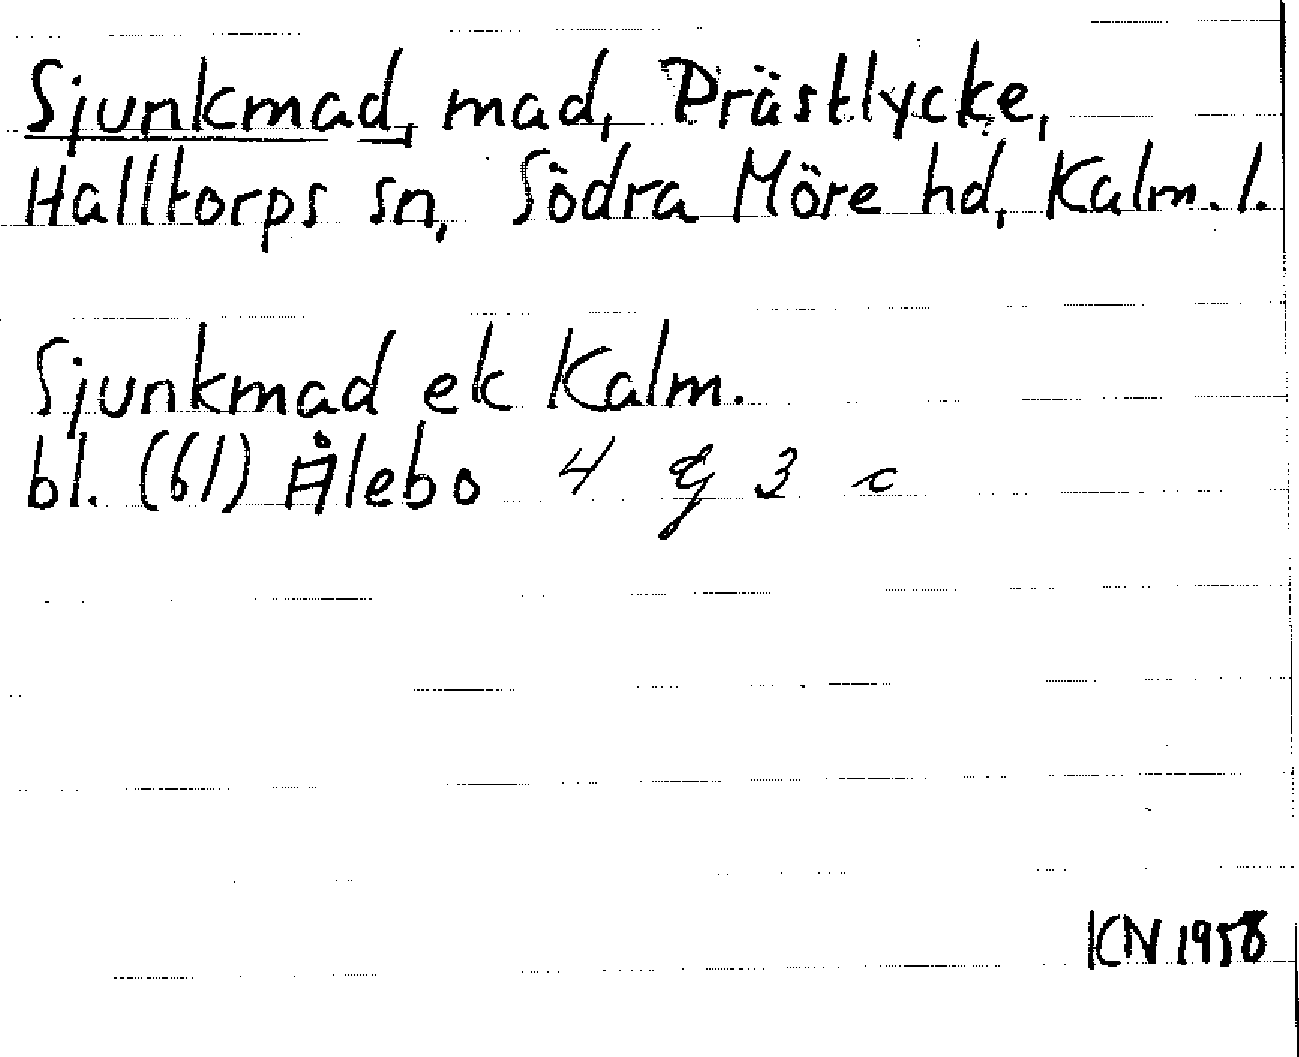 Sjunkmad, mad, Prästlycke,
Halltorps sn, Södra Möre hd, Kalm. l.
Sjunkmad ek Kalm.
bl. (61) Ålebo 4 g 3 c
KN 1958